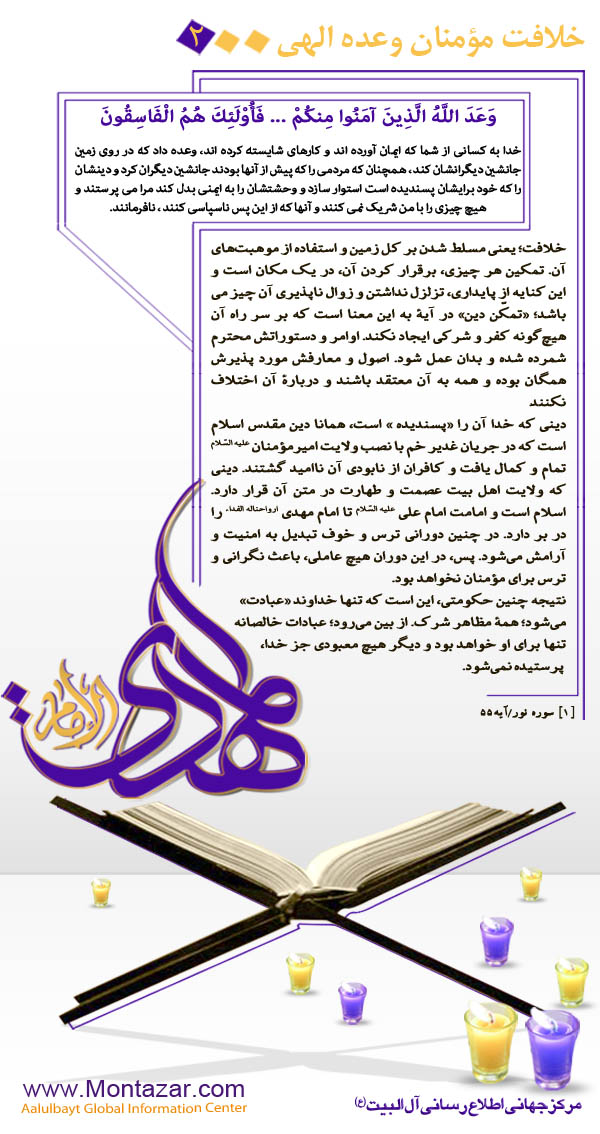 خلافت مؤمنان وعده الهی ۲
وَعَدَ اللَّهُ الَّذِينَ آمَنُوا مِنكُمْ ... فَأُوْلَئِكَ هُمُ الْفَاسِقُونَ
خدا به کسانی از شما که ایمان آورده اند و کارهای شایسته کرده اند، وعده داد که در روی زمین
جانشین دیگرانشان کند، همچنان که مردمی را که پیش از آنها بودند جانشین دیگران کرد و دینشان
را که خود برایشان پسندیده است استوار سازد و وحشتشان را به ایمنی بدل کند مرا می پرستند و
هیچ چیزی را با من شریک نمی کنند و آنها که از این پس ناسپاسی کنند ، نافرمانند.
خلافت؛ یعنی مسلط شدن بر کل زمین و استفاده از موهبت‌های
آن. تمکین هر چیزی، برقرار کردن آن، در یک مکان است و
این کنایه از پایداری، تزلزل نداشتن و زوال ناپذیری آن چیز می
باشد؛ «تمکّن دین» در آیهٔ به این معنا است که بر سر راه آن
هیچ‌گونه کفر و شرکی ایجاد نکند. اوامر و دستوراتش محترم
شمرده شده و بدان عمل شود. اصول و معارفش مورد پذیرش
همگان بوده و همه به آن معتقد باشند و دربارهٔ آن اختلاف
نکنند
دینی که خدا آن را «پسندیده » است، همانا دین مقدس اسلام
است که در جریان غدیر خم با نصب ولایت امیرمؤمنان علیه السّلام
تمام و کمال یافت و کافران از نابودی آن ناامید گشتند. دینی
که ولایت اهل بیت عصمت و طهارت در متن آن قرار دارد.
اسلام است و امامت امام علی علیه السّلام تا امام مهدی ارواحناله الفداء را
در بر دارد. در چنین دورانی ترس و خوف تبدیل به امنیت و
آرامش می‌شود. پس، در این دوران هیچ عاملی، باعث نگرانی و
ترس برای مؤمنان نخواهد بود.
نتیجه چنین حکومتی، این است که تنها خداوند «عبادت»
می‌شود؛ همهٔ مظاهر شرک. از بین می‌رود؛ عبادات خالصانه
تنها برای او خواهد بود و دیگر هیچ معبودی جز خدا،
پرستیده نمی‌شود.
[۱] سوره نور/آیه ۵۵
الإمام
المهدي
www.Montazar.com
Aalulbayt Global Information Center
مرکز جهانی اطلاع رسانی آل البیت (ع)